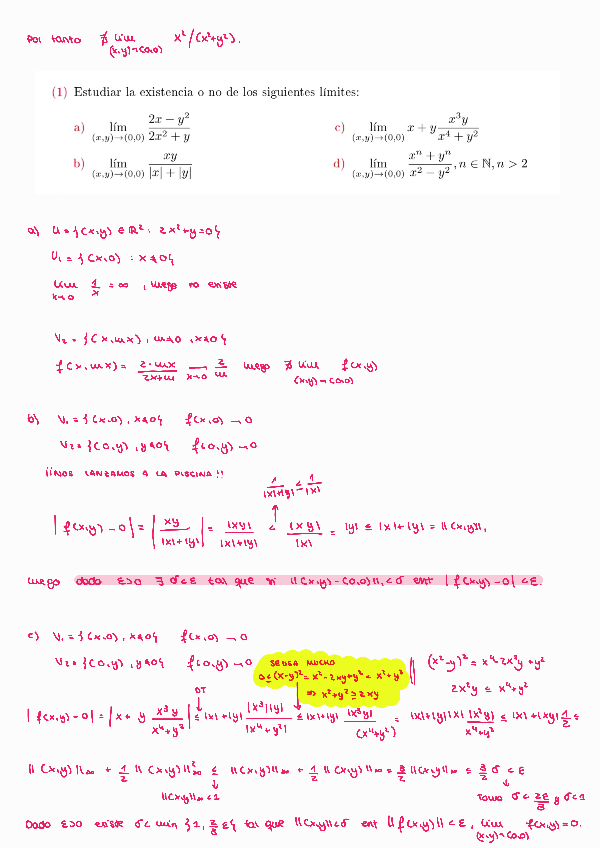 Por tanto ∄ lim x²/(x²+y²).
(x,y)→(0,0)
(1) Estudiar la existencia o no de los siguientes límites:
a) lím_{(x,y)→(0,0)} (2x − y²)/(2x² + y)
c) lím_{(x,y)→(0,0)} x + y x³y/(x⁴ + y²)
b) lím_{(x,y)→(0,0)} xy/(|x| + |y|)
d) lím_{(x,y)→(0,0)} (xⁿ + yⁿ)/(x² − y²), n ∈ ℕ, n > 2
a) U = {(x,y) ∈ ℝ² : 2x²+y=0}
U₁ = {(x,0) : x≠0}
lim_{x→0} 1/x = ∞ , luego no existe
V₂ = {(x,mx), m≠0, x≠0}
f(x,mx) = (2-mx)/(2x+m) →_{x→0} 2/m luego ∄ lim_{(x,y)→(0,0)} f(x,y)
b) V₁ = {(x,0), x≠0} f(x,0) → 0
V₂ = {(0,y), y≠0} f(0,y) → 0
¡¡NOS LANZAMOS A LA PISCINA!!
1/(|x|+|y|) ≤ 1/|x|
|f(x,y) − 0| = |xy/(|x|+|y|)| = |xy|/(|x|+|y|) < |xy|/|x| = |y| ≤ |x|+|y| = ||(x,y)||₁
luego dado ε>0 ∃ δ<ε tal que si ||(x,y)-(0,0)||₁<δ ent |f(x,y)-0|<ε.
c) V₁ = {(x,0), x≠0} f(x,0) → 0
V₂ = {(0,y), y≠0} f(0,y) → 0
SE USA MUCHO
0≤(x-y)² = x²-2xy+y² < x²+y²
⇒ x²+y² ≥ 2xy
(x²-y)² = x⁴-2x²y+y²
2x²y ≤ x⁴+y²
DT
|f(x,y)-0| = |x + y x³y/(x⁴+y²)| ≤ |x|+|y| |x³||y|/|x⁴+y²| ≤ |x|+|y| |x³y|/(x⁴+y²) = |x|+|y||x| |x²y|/(x⁴+y²) ≤ |x|+|xy| 1/2 ≤
||(x,y)||∞ + 1/2 ||(x,y)||²∞ ≤ ||(x,y)||∞ + 1/2 ||(x,y)||∞ = 3/2 ||(x,y)||∞ ≤ 3/2 δ < ε
||(x,y)||∞<1
Tomo δ < 2ε/3 y δ<1
Dado ε>0 existe δ< min {1, 2/3 ε} tal que ||(x,y)||<δ ent ||f(x,y)||<ε, lim_{(x,y)→(0,0)} f(x,y)=0.